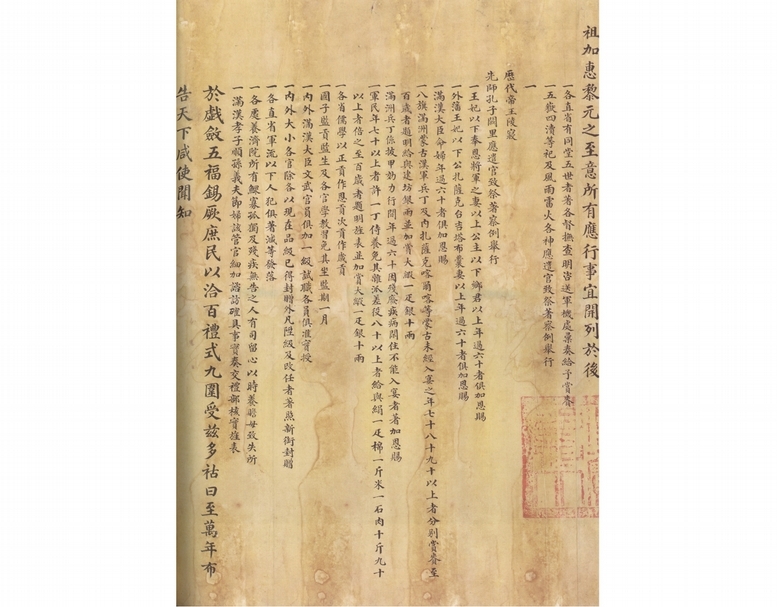 祖加惠黎元之至意所有應行事宜開列於後
一各直省有同堂五世者著各督撫查明咨送軍機處彙奏給予賞賚
一五嶽四瀆等祀及風雨雷火各神應遣官致祭著察例舉行
一
歷代帝王陵寢
先師孔子闕里應遣官致祭著察例舉行
一王妃以下奉恩將軍之妻以上公主以下鄉君以上年過六十者俱加恩賜
一外藩王妃以下公扎薩克台吉塔布囊妻以上年過六十者俱加恩賜
一滿漢大臣命婦年過六十者俱加恩賜
一八旗滿洲蒙古漢軍兵丁及內扎薩克喀爾喀等蒙古未經入宴之年七十八十九十以上者分別賞賚至
百歲者題明給與建坊銀兩並加賞大緞一疋銀十兩
一滿洲兵丁係披甲効力行間年過六十因殘廢疾病閒住不能入宴者著加恩賜
一軍民年七十以上者許一丁侍養免其雜派差役八十以上者給與絹一疋棉一斤米一石肉十斤九十
以上者倍之至百歲者題明旌表並加賞大緞一疋銀十兩
一各省儒學以正貢作恩貢次貢作歲貢
一國子監貢監生及各官學教習免其坐監期一月
一內外滿漢大臣文武官員俱加一級試職各員俱准實授
一內外大小各官除各以現在品級已得封贈外凡陞級及改任者著照新銜封贈
一各直省軍流以下人犯俱著減等發落
一各處養濟院所有鰥寡孤獨及殘疾無告之人有司留心以時養贍毋致失所
一滿漢孝子順孫義夫節婦該管官細加諮訪確具事實奏交禮部核實旌表
於戲斂五福錫厥庶民以洽百禮式九圍受茲多祜曰至萬年布
告天下咸使聞知